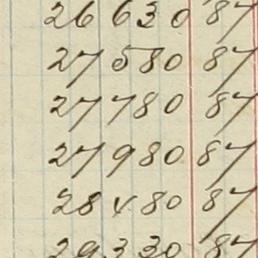 26 630 87
27 580 87
27 780 87
27 980 87
28 480 87
29 330 87